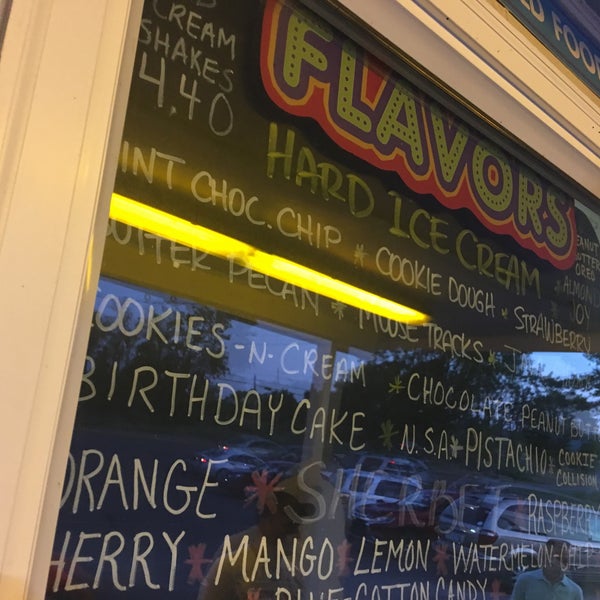 CREAM
SHAKES
4.40
FLAVORS
HARD ICE CREAM
D FOO
MINT CHOC. CHIP * COOKIE DOUGH * STRAWBERRY
BUTTER PECAN * MOOSE TRACKS *
ALMOND
JOY
COOKIES-N-CREAM * CHOCOLATE PEANUT
BIRTHDAY CAKE * N.S.A * PISTACHIO * COOKIE COLLISION
ORANGE * SHERBET
RASPBERRY
CHERRY * MANGO * LEMON * WATERMELON-CHIP
BLUE-COTTON CANDY *